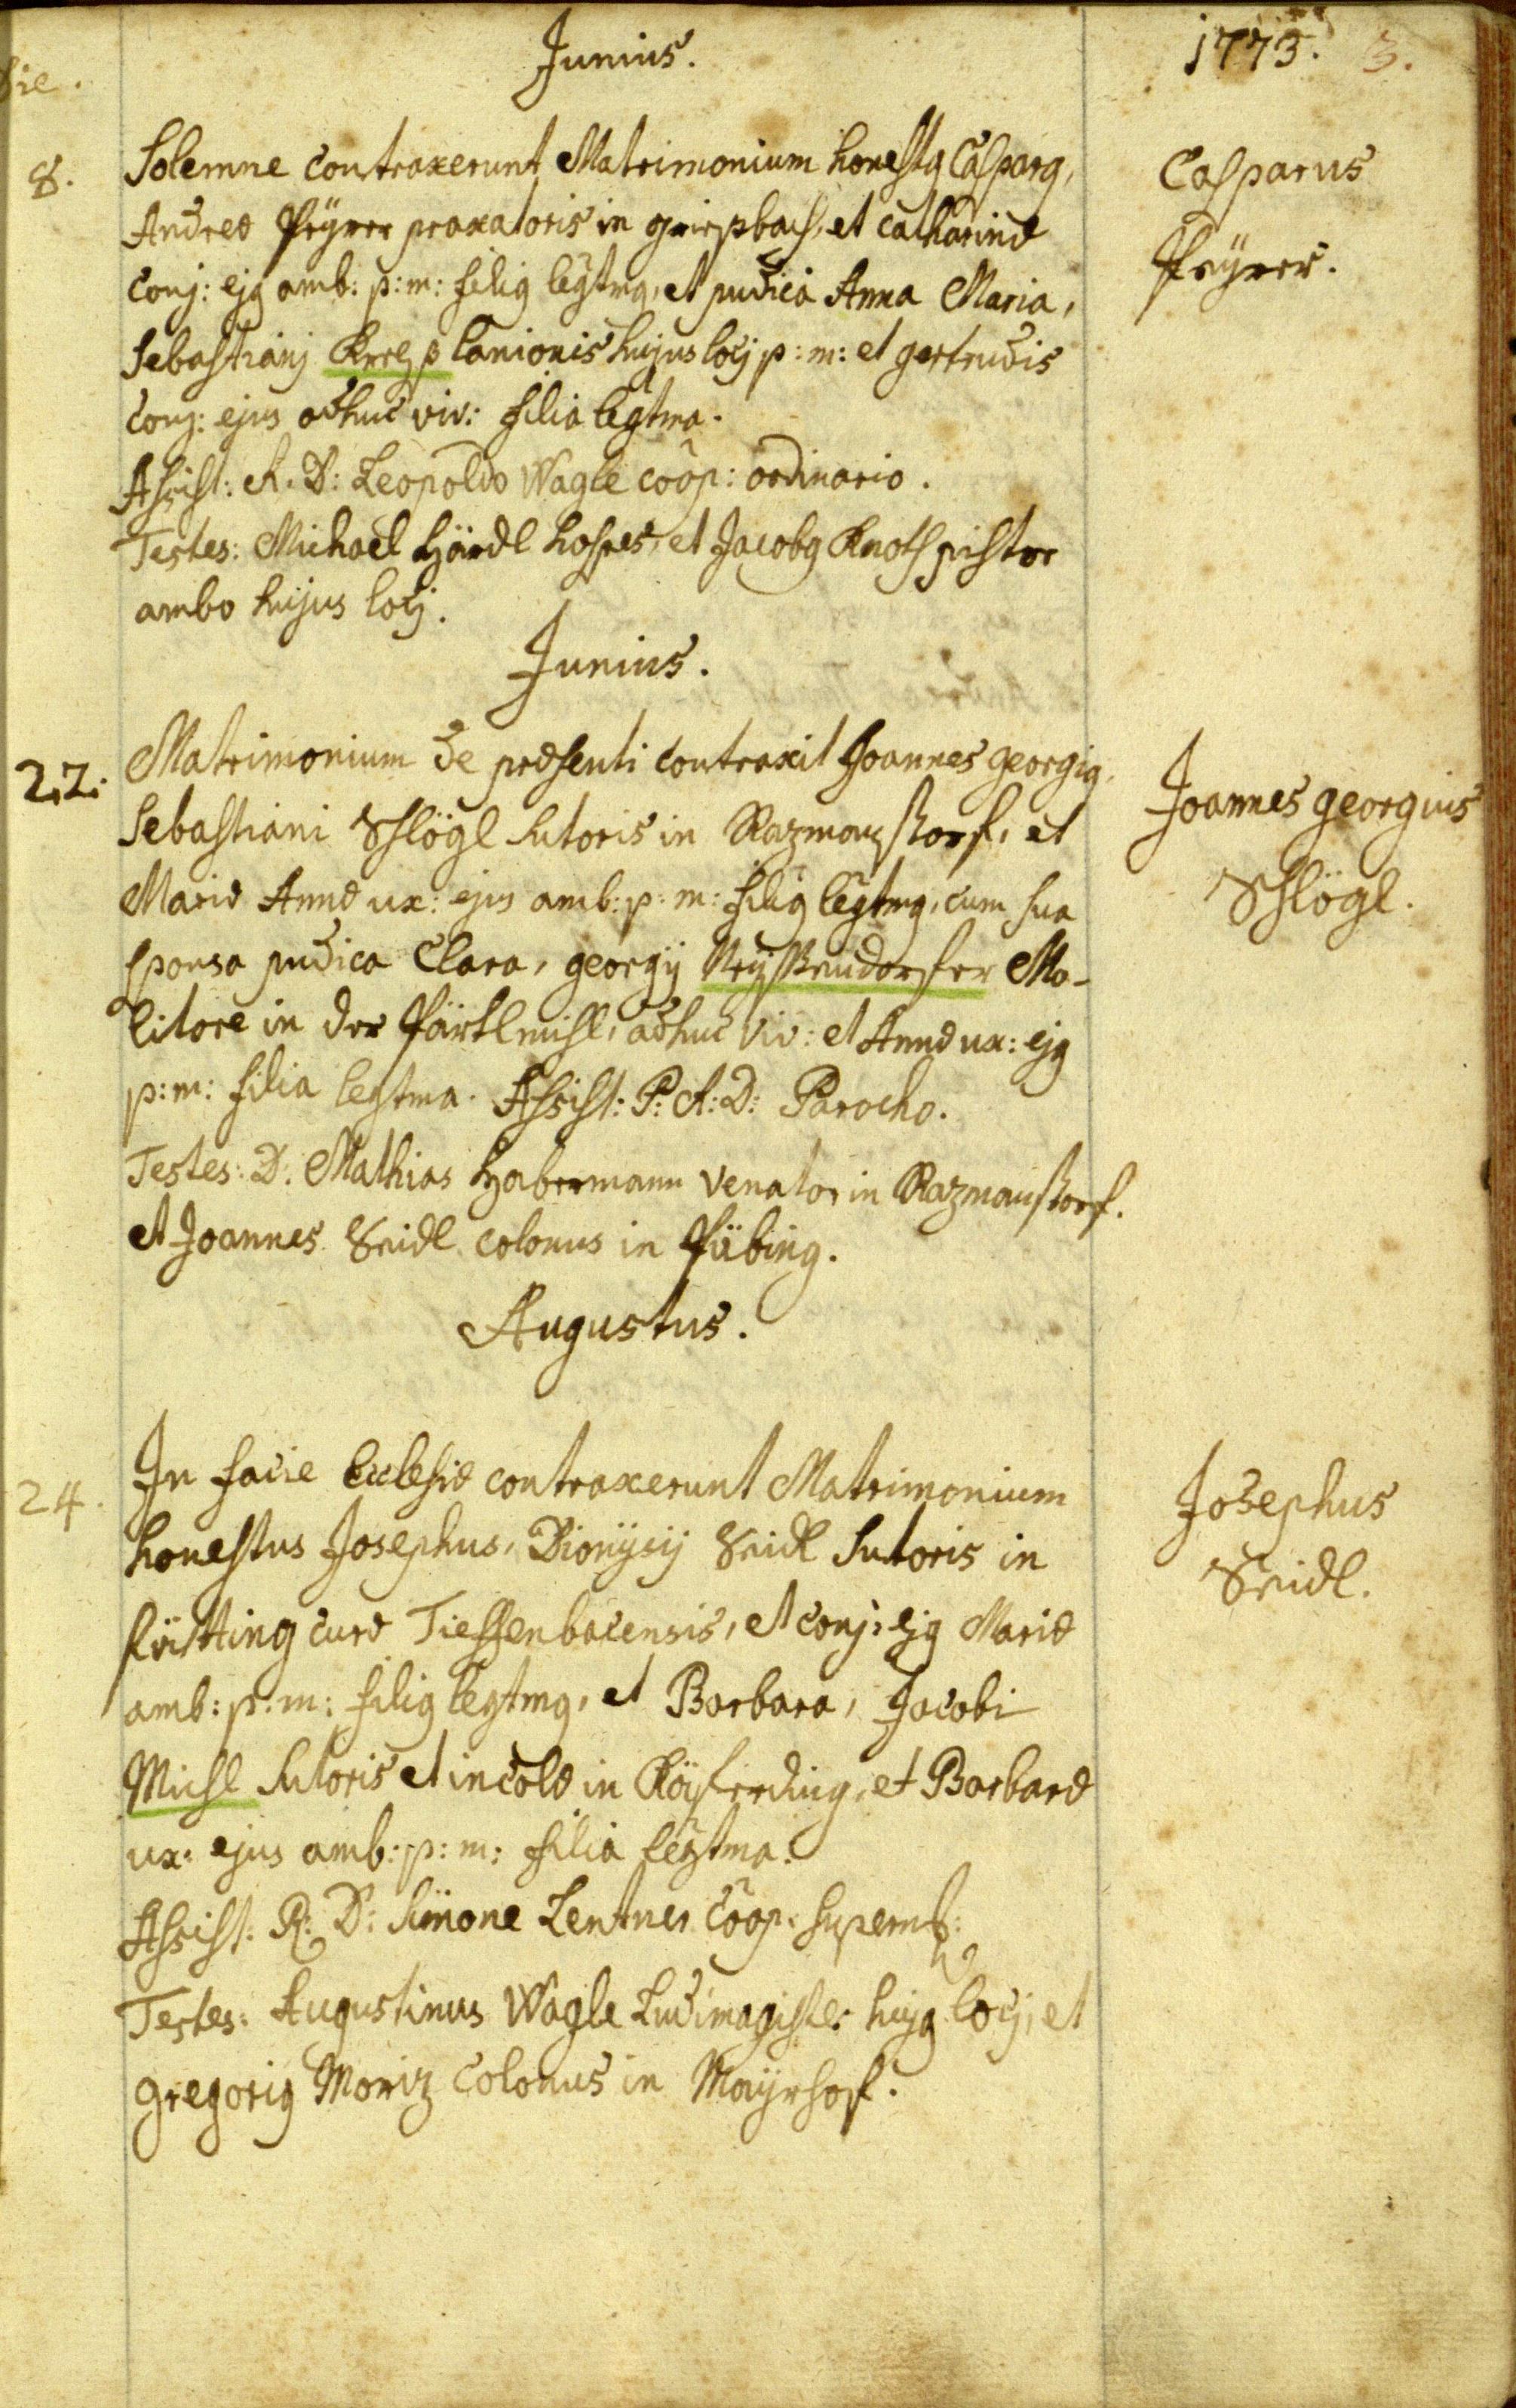 die.
Junius.
1773. 3.
8.
Solemne contraxerunt Matrimonium honestg Casparg,
Andreæ Peÿrer praxatoris in griesbach, et Catharinæ
Conj: ejg amb: p: m: filig legtmg, et pudica Anna Maria,
Sebastianj Lanionis hujus locj p: m: et gertrudis
Conj: ejus adhuc viv: filia legtma.
Assist: A. R. D: Leopoldo Wagle coop: ordinario.
Testes: Michael Härdl hospes, et Jacobg Knoth pistor
ambo hujus locj.
Casparus
Peÿrer.
Junius.
22.
Matrimonium de præsenti contraxit Joannes georgig,
Sebastiani Schlögl Sutoris in Razmanstorf, et
Mariæ Annæ ux: ejus amb: p: m: filig legtmg, cum sua
sponsa pudica Clara, georgij Mo-
litore in der adhuc viv: et Annæ ux: ejg
p: m: filia legtma. Assist: P: R: D: Parocho.
Testes: D. Mathias Habermann Venator in Razmanstorf.
et Joannes Seidl colonus in
Joannes georgius
Schlögl.
Augustus.
24.
In facie Ecclesiæ contraxerunt Matrimonium
honestus Josephus, Dionÿsij Seidl Sutoris in
curæ Tieffenbacensis, et conj: ejg Mariæ
amb: p: m: filig legtmg, et Barbara, Jacobi
Michl Sutoris et incolæ in et Barbaræ
ux: ejus amb: p: m: filia legtma.
Assist: R: D: Simone Lentner Coop:
Testes: Augustinus Wagle Ludimagister hujg locj, et
gregorig Moriz Colonus in Maÿrhof.
Josephus
Seidl.